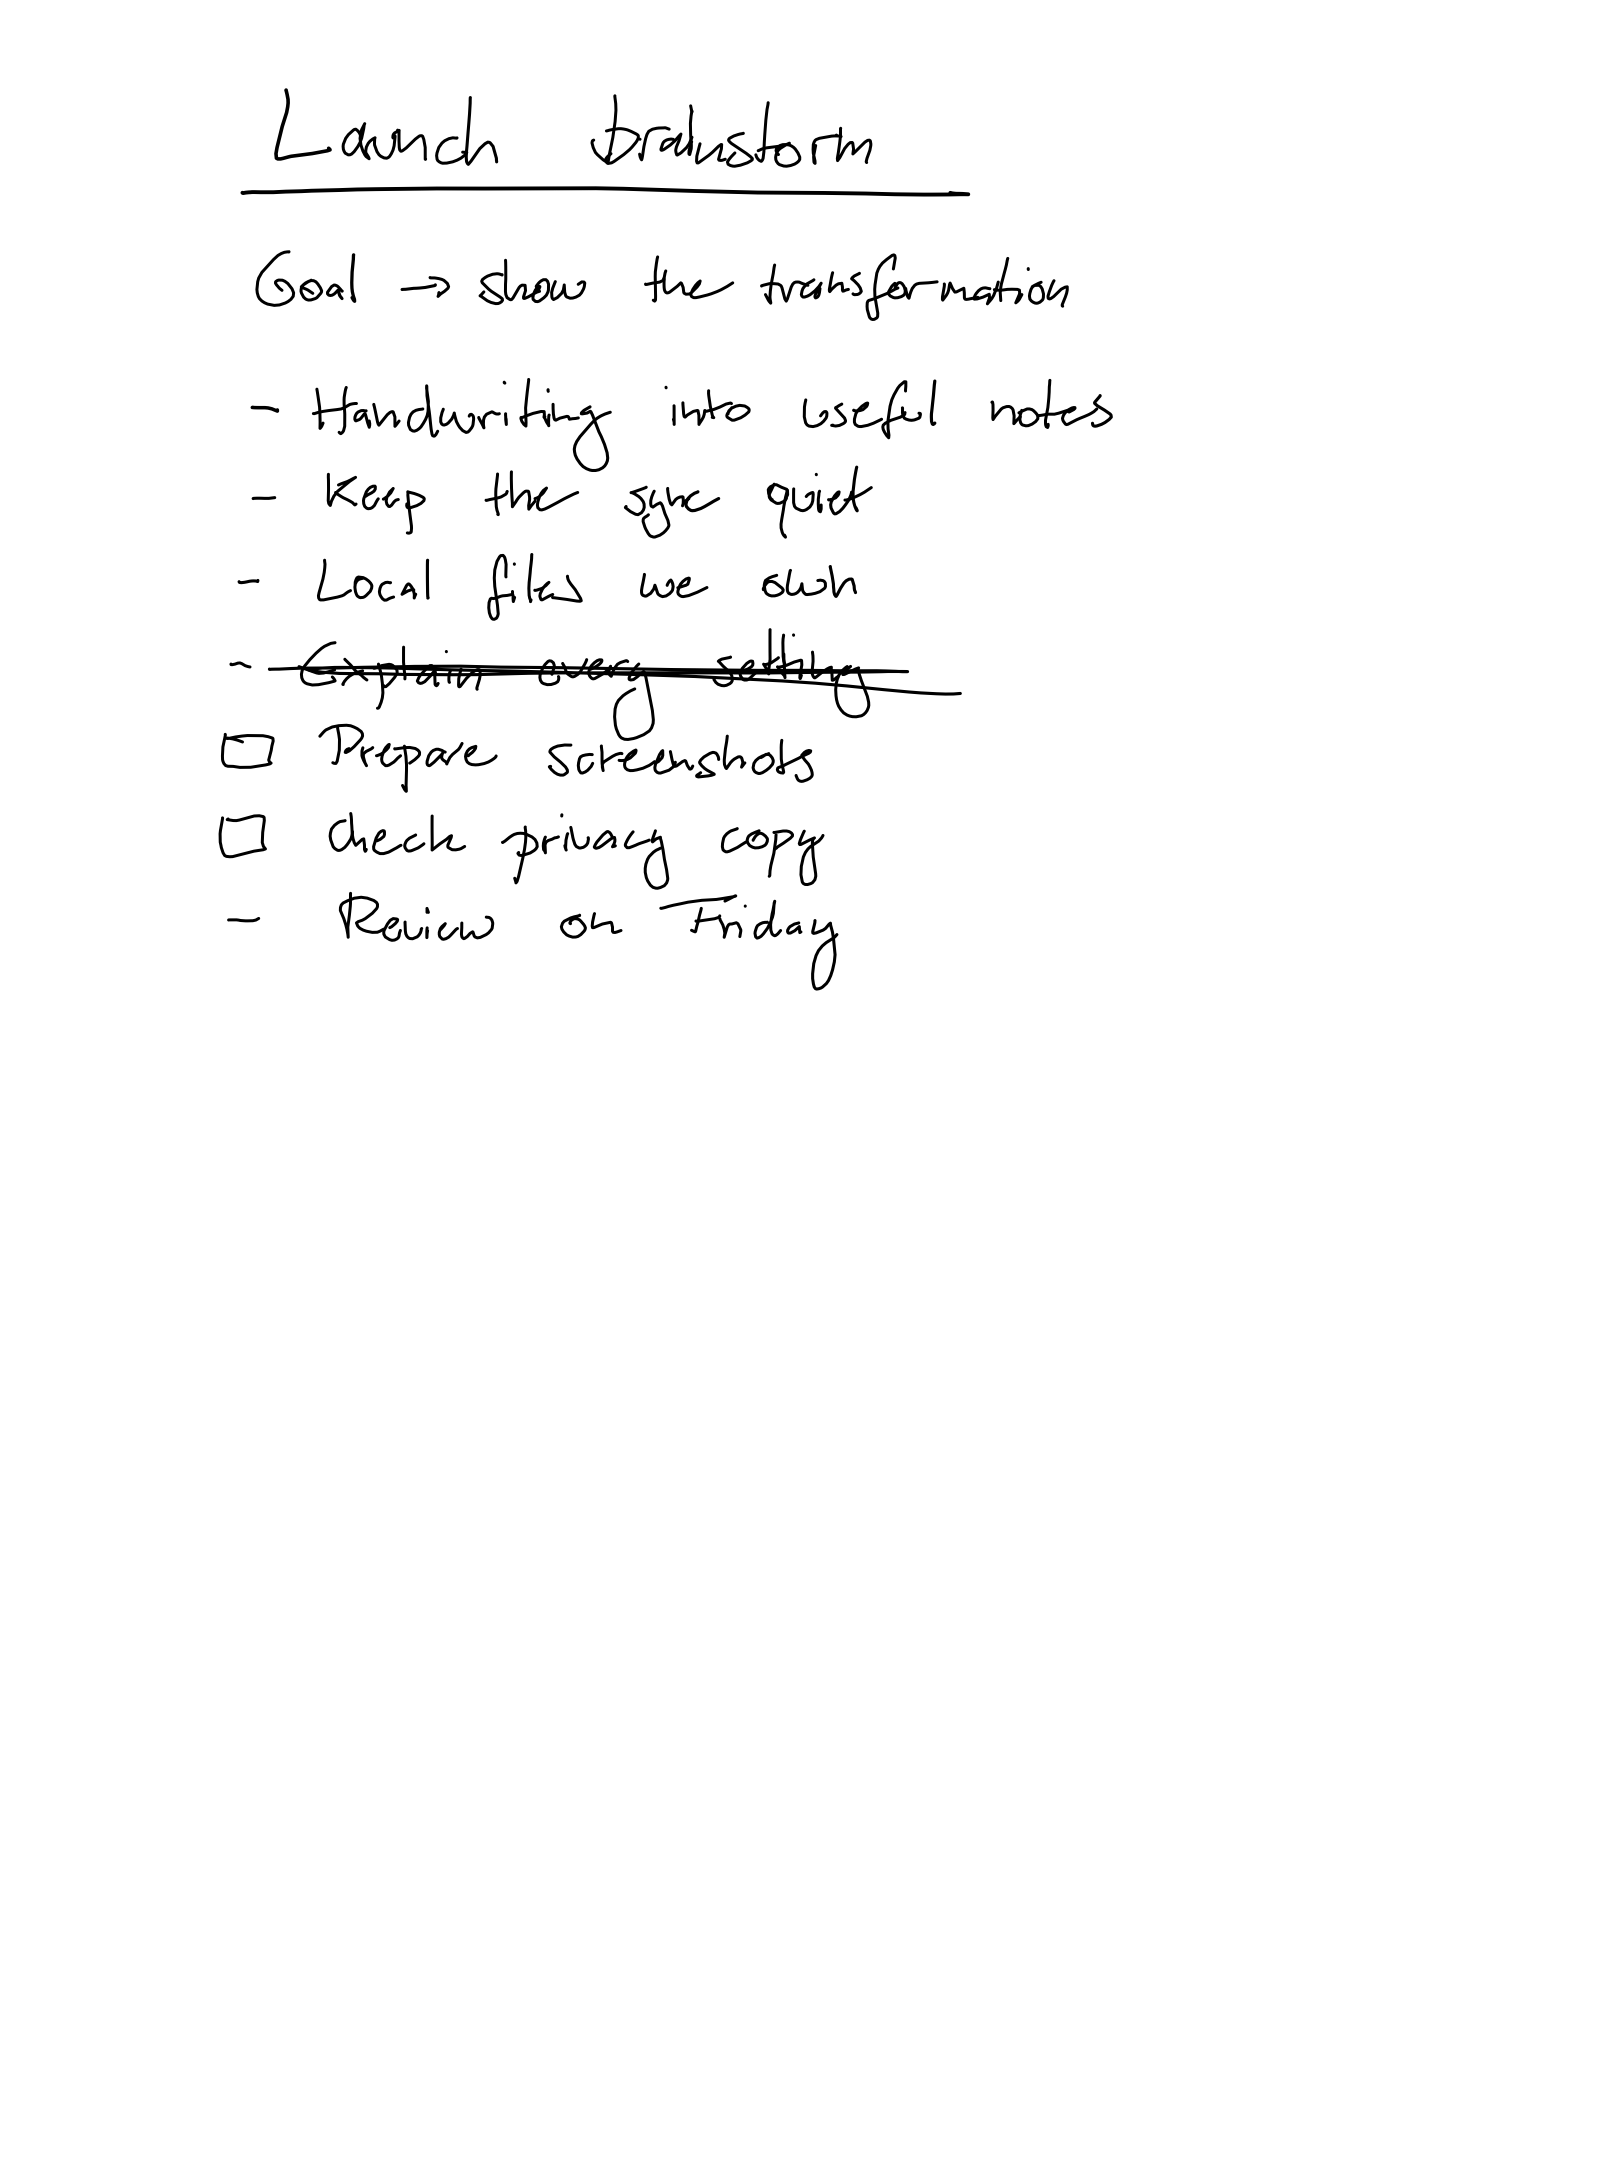 Launch brainstorm
Goal → show the transformation
- Handwriting into useful notes
- Keep the sync quiet
- Local files we own
- ~~Explain every setting~~
☐ Prepare screenshots
☐ Check privacy copy
- Review on Friday